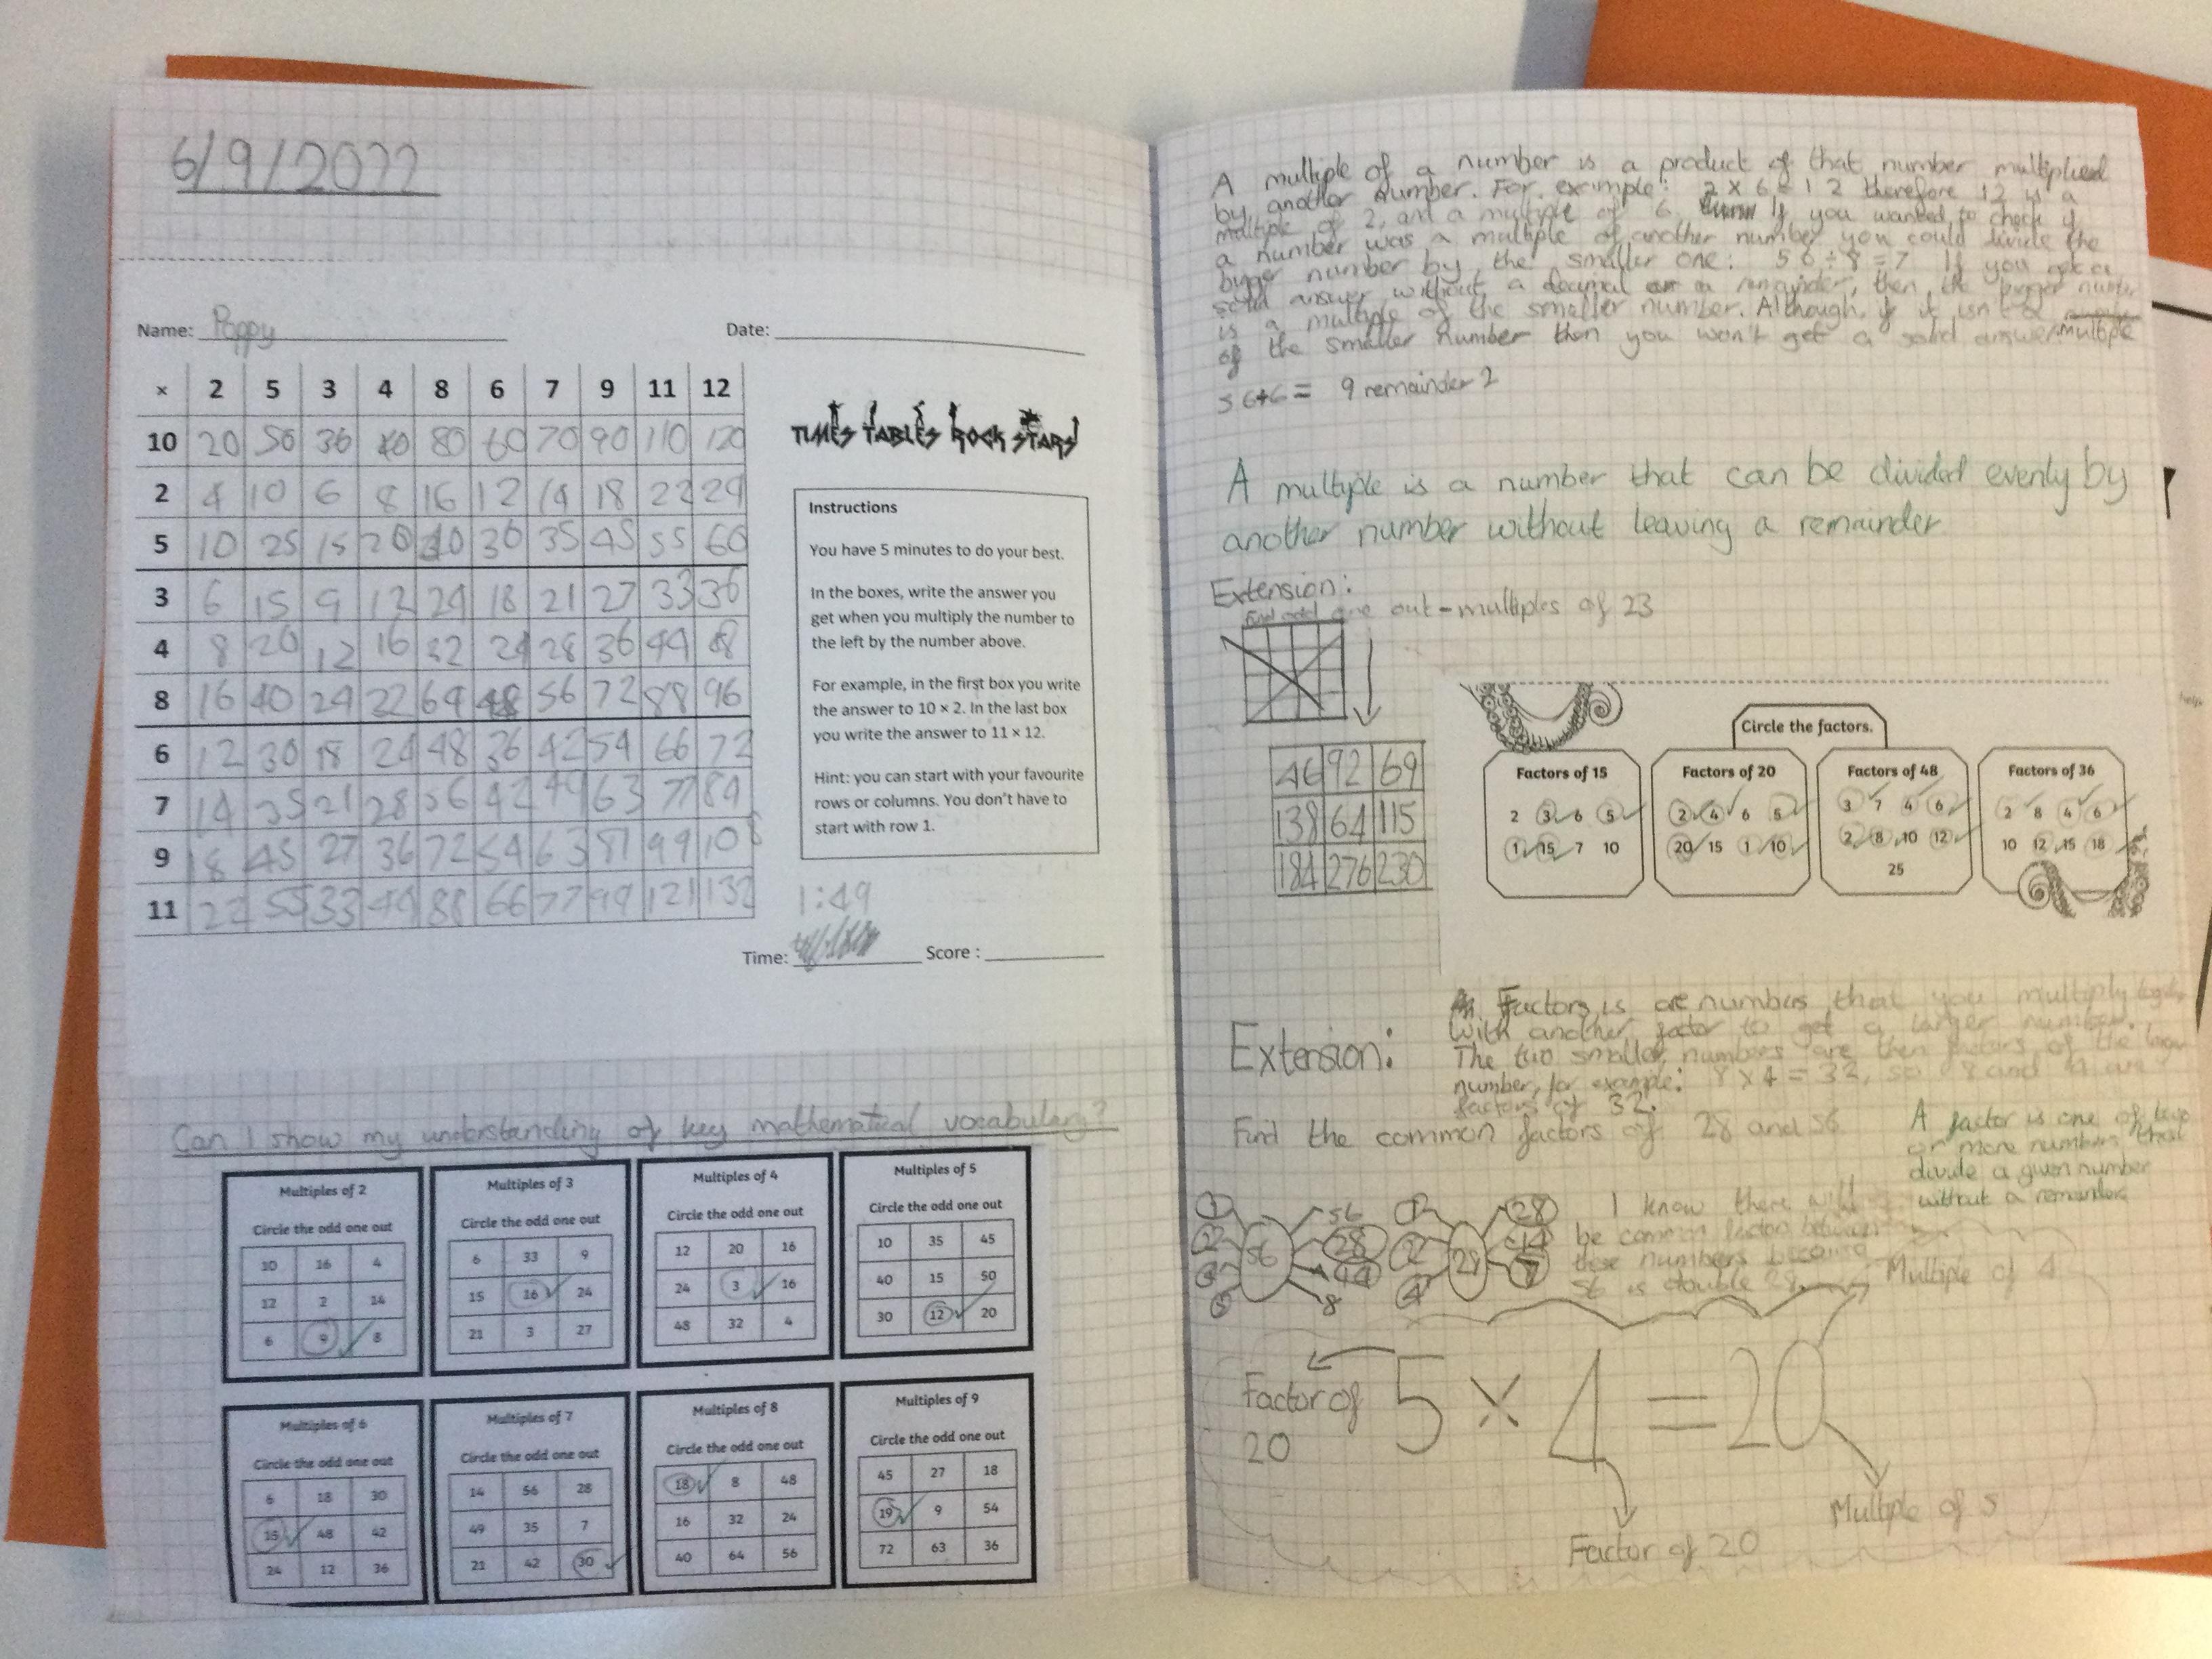 6/9/2022
Name: Poppy
Date:
× 2 5 3 4 8 6 7 9 11 12
10 20 50 30 40 80 60 70 90 110 120
2 4 10 6 8 16 12 14 18 22 24
5 10 25 15 20 40 30 35 45 55 60
3 6 15 9 12 24 18 21 27 33 36
4 8 20 12 16 32 24 28 36 44 48
8 16 40 24 32 64 48 56 72 88 96
6 12 30 18 24 48 36 42 54 66 72
7 14 35 21 28 56 42 49 63 77 84
9 18 45 27 36 72 54 63 81 99 108
11 22 55 33 44 88 66 77 99 121 132
TIMES TABLES ROCK STARS
Instructions
You have 5 minutes to do your best.
In the boxes, write the answer you
get when you multiply the number to
the left by the number above.
For example, in the first box you write
the answer to 10 × 2. In the last box
you write the answer to 11 × 12.
Hint: you can start with your favourite
rows or columns. You don't have to
start with row 1.
1:49
Time:
Score :
Can I show my understanding of key mathematical vocabulary?
Multiples of 2
Circle the odd one out
10 16 4
12 2 14
6 9 8
Multiples of 3
Circle the odd one out
6 33 9
15 16 24
21 3 27
Multiples of 4
Circle the odd one out
12 20 16
24 3 16
48 32 4
Multiples of 5
Circle the odd one out
10 35 45
40 15 50
30 12 20
Multiples of 6
Circle the odd one out
6 18 30
15 48 42
24 12 36
Multiples of 7
Circle the odd one out
14 56 28
49 35 7
21 42 30
Multiples of 8
Circle the odd one out
18 8 48
16 32 24
40 64 56
Multiples of 9
Circle the odd one out
45 27 18
19 9 54
72 63 36
A multiple of a number is a product of that number multiplied
by another number. For exemple: 2 x 6 = 12 therefore 12 is a
multiple of 2, and a multiple of 6. If you wanted to check if
a number was a multiple of another number you could divide the
bigger number by the smaller one: 56 ÷ 8 = 7 If you get a
solid answer without a decimal or a remainder, then the bigger number
is a multiple of the smaller number. Although, if it isn't a multiple
of the smaller number then you won't get a solid answer.
56÷6= 9 remainder 2
A multiple is a number that can be divided evenly by
another number without leaving a remainder
Extension:
Find odd one out - multiples of 23
46 92 69
138 64 115
184 276 230
Circle the factors.
Factors of 15
2 3 6 5
1 15 7 10
Factors of 20
2 4 6 5
20 15 1 10
Factors of 48
3 7 4 6
2 8 10 12
25
Factors of 36
2 8 4 6
10 12 15 18
Extension:
Factors is are numbers that you multiply
with another factor to get a larger number.
The two smaller numbers are then factors of the larger
number, for example: 8 x 4 = 32, so 8 and 4 are
factors of 32.
Find the common factors of 28 and 56
A factor is one of two
or more numbers that
divide a given number
without a remainder
1 56
2 56 28
4 14
8
1 28
2 28 14
4 7
I know there will
be common factors between
these numbers because
56 is double 28.
Multiple of 4
Factor of
20
5 × 4 = 20
Multiple of 5
Factor of 20